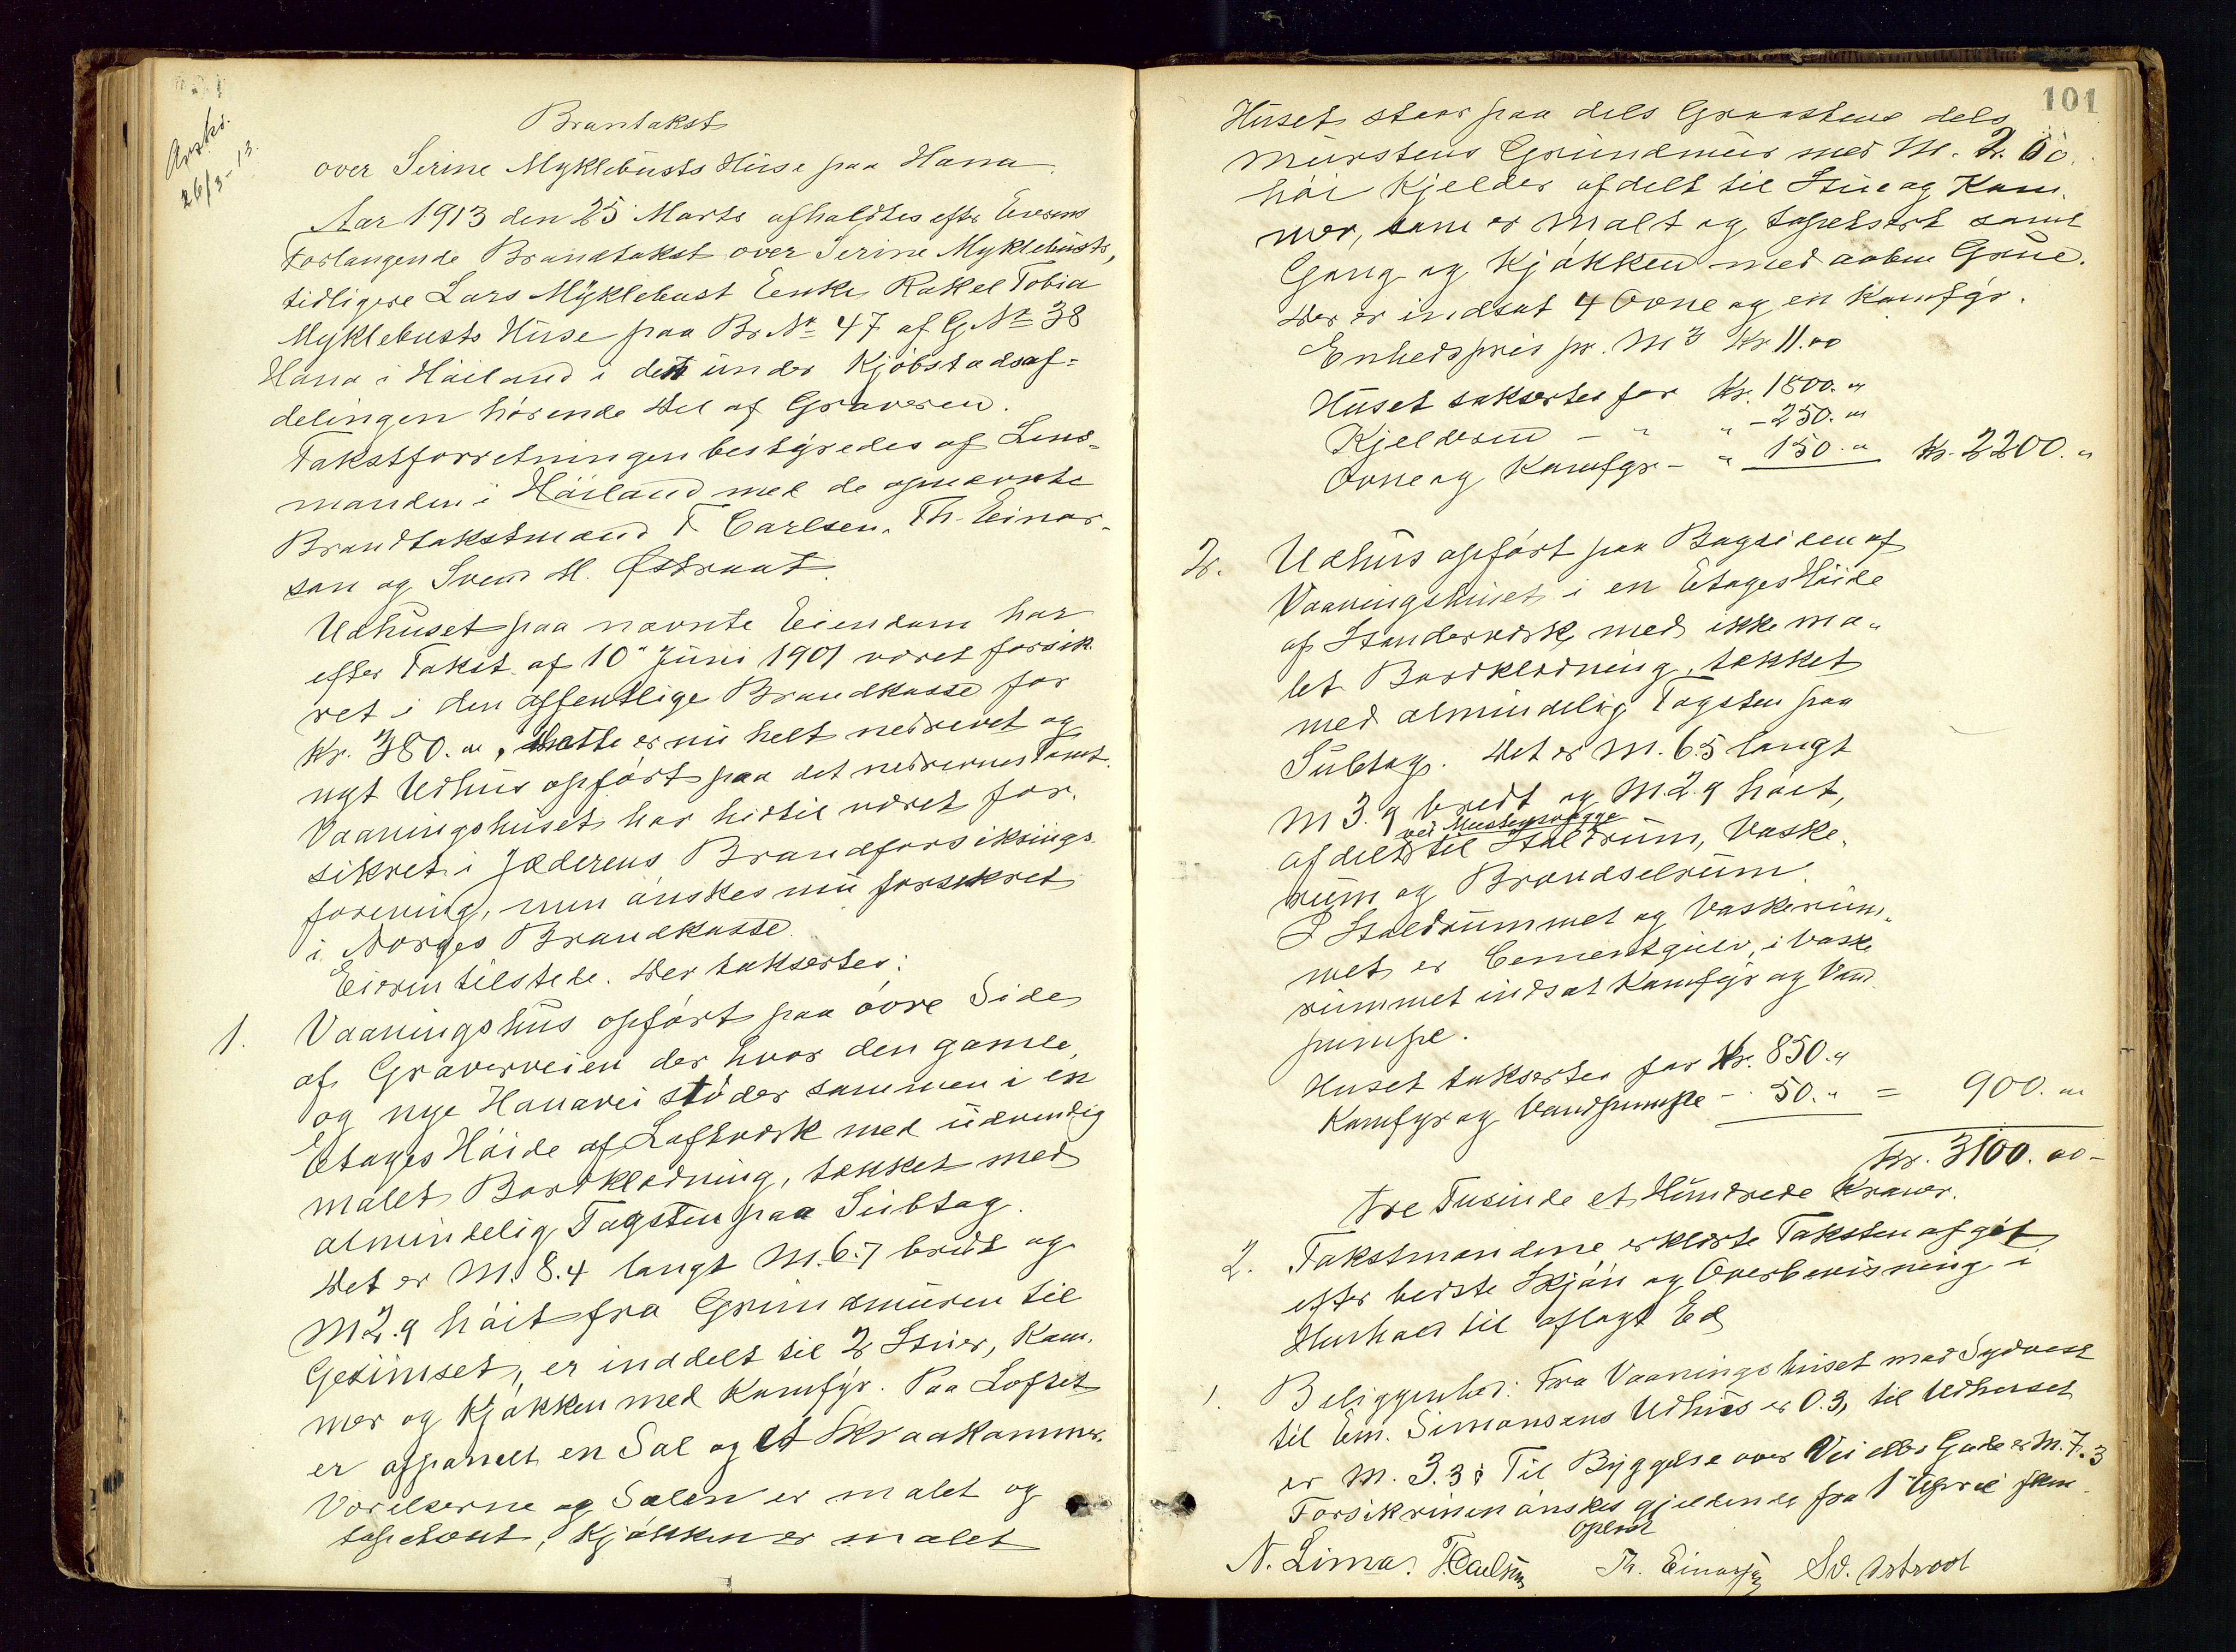 Arskr.
26/3-13.
Brantakst
over Serine Myklebusts Huse paa Hana.
Aar 1913 den 25 Marts afholdtes efter Eierens
Forlangende Brandtakst over Serine Myklebusts,
tidligere Lars Myklebust Enke, Rakel Tobia
Myklebusts Huse paa Br. Nr 47 af G. Nr 38
Hana i Höiland i den under Kjöbstadsaf-
delingen hörende Del af Graveren.
Takstforretningen bestyredes af Lens-
manden i Höiland med de opnævnte
Brandtakstmænd T. Carlsen, Th. Einar-
sen og Svend M. Østraat.
Udhuset paa nævnte Eiendom har
efter Takst af 10" Juni 1901 været forsik-
ret i den offentlige Brandkasse for
Kr. 380. Dette er nu helt nedrevet og
nyt Udhus opfört paa det nedrevnes Tomt.
Vaaningshuset har hidtil været for-
sikret i Jæderens Brandforsikrings-
forening, men önskes nu forsikret
i Norges Brandkasse.
Eieren tilstede. Der takserte̶s:
1. Vaaningshus opfört paa övre Side
af Graverveien der hvor den gamle
og nye Hanavei stöder sammen i en
Etages Höide af Loftværk med udvendig
malet Bordklædning, tækket med
almindelig Tagsten paa Subtag.
Det er M. 8.4 langt M. 6.7 bredt og
M 2.9 höit fra Grundmuren til
Gesimset, er inddelt til 2 Stuer, Kam-
mer og Kjökken med Komfyr. Paa Loftet
er afpanelt en Sal og et Skraakammer.
Værelserne og Salen er malet og
tapetsert, Kjökken er malet
101
Huset staar paa dels Graastens dels
Murstens Grundmur med M. 2.00
höi Kjelder afdelt til Stue og Kam-
mer, som er malt og tapetsert samt
Gang og Kjökken med aaben Grue.
Der er indsat 4 Ovne og en Komfyr.
Enhedspris pr. M3 Kr 11.00
Huset takseres for Kr. 1800. "
Kjelderen - " " - 250. "
Ovne og Komfyr - " 150. " Kr. 2200. "
2. Udhus opfört paa Bagsiden af
Vaaningshuset i en Etages Höide
af Standerværk med ikke ma-
let Bordklædning, tækket
med almindelig Tagsten paa
Subtag. Det er M. 6.5 langt
M 3.9 bredt og M. 2.9 höit,
ved Murstensvægge
afdelt til Staldrum, Vaske-
rum og Brændselrum.
I Staldrummet og Vaskerum-
met er Cementgulv, i Vaske
rummet indsat Komfyr og Vand
pumpe.
Huset takseres for Kr. 850. "
Komfyr og Vandpumpe - 50. " = 900. "
Kr. 3100. 00 -
Tre Tusinde et Hundrede Kroner.
2. Takstmændene erklærte Taksten afgit
efter bedste Skjön og Overbevisning i
Henhold til aflagt Ed
1. Beliggenhed: Fra Vaaningshuset mod Sydvest
til Em. Simonsens Udhus er 0.3, til Udhuset
er M. 3.3. Til Byggelse over Vei eller Gade er M. 7.3
Forsikringen önskes gjeldende fra 1" April
Oplæst
N. Lima. T. Carlsen Th. Einarsen Sv. Østraat